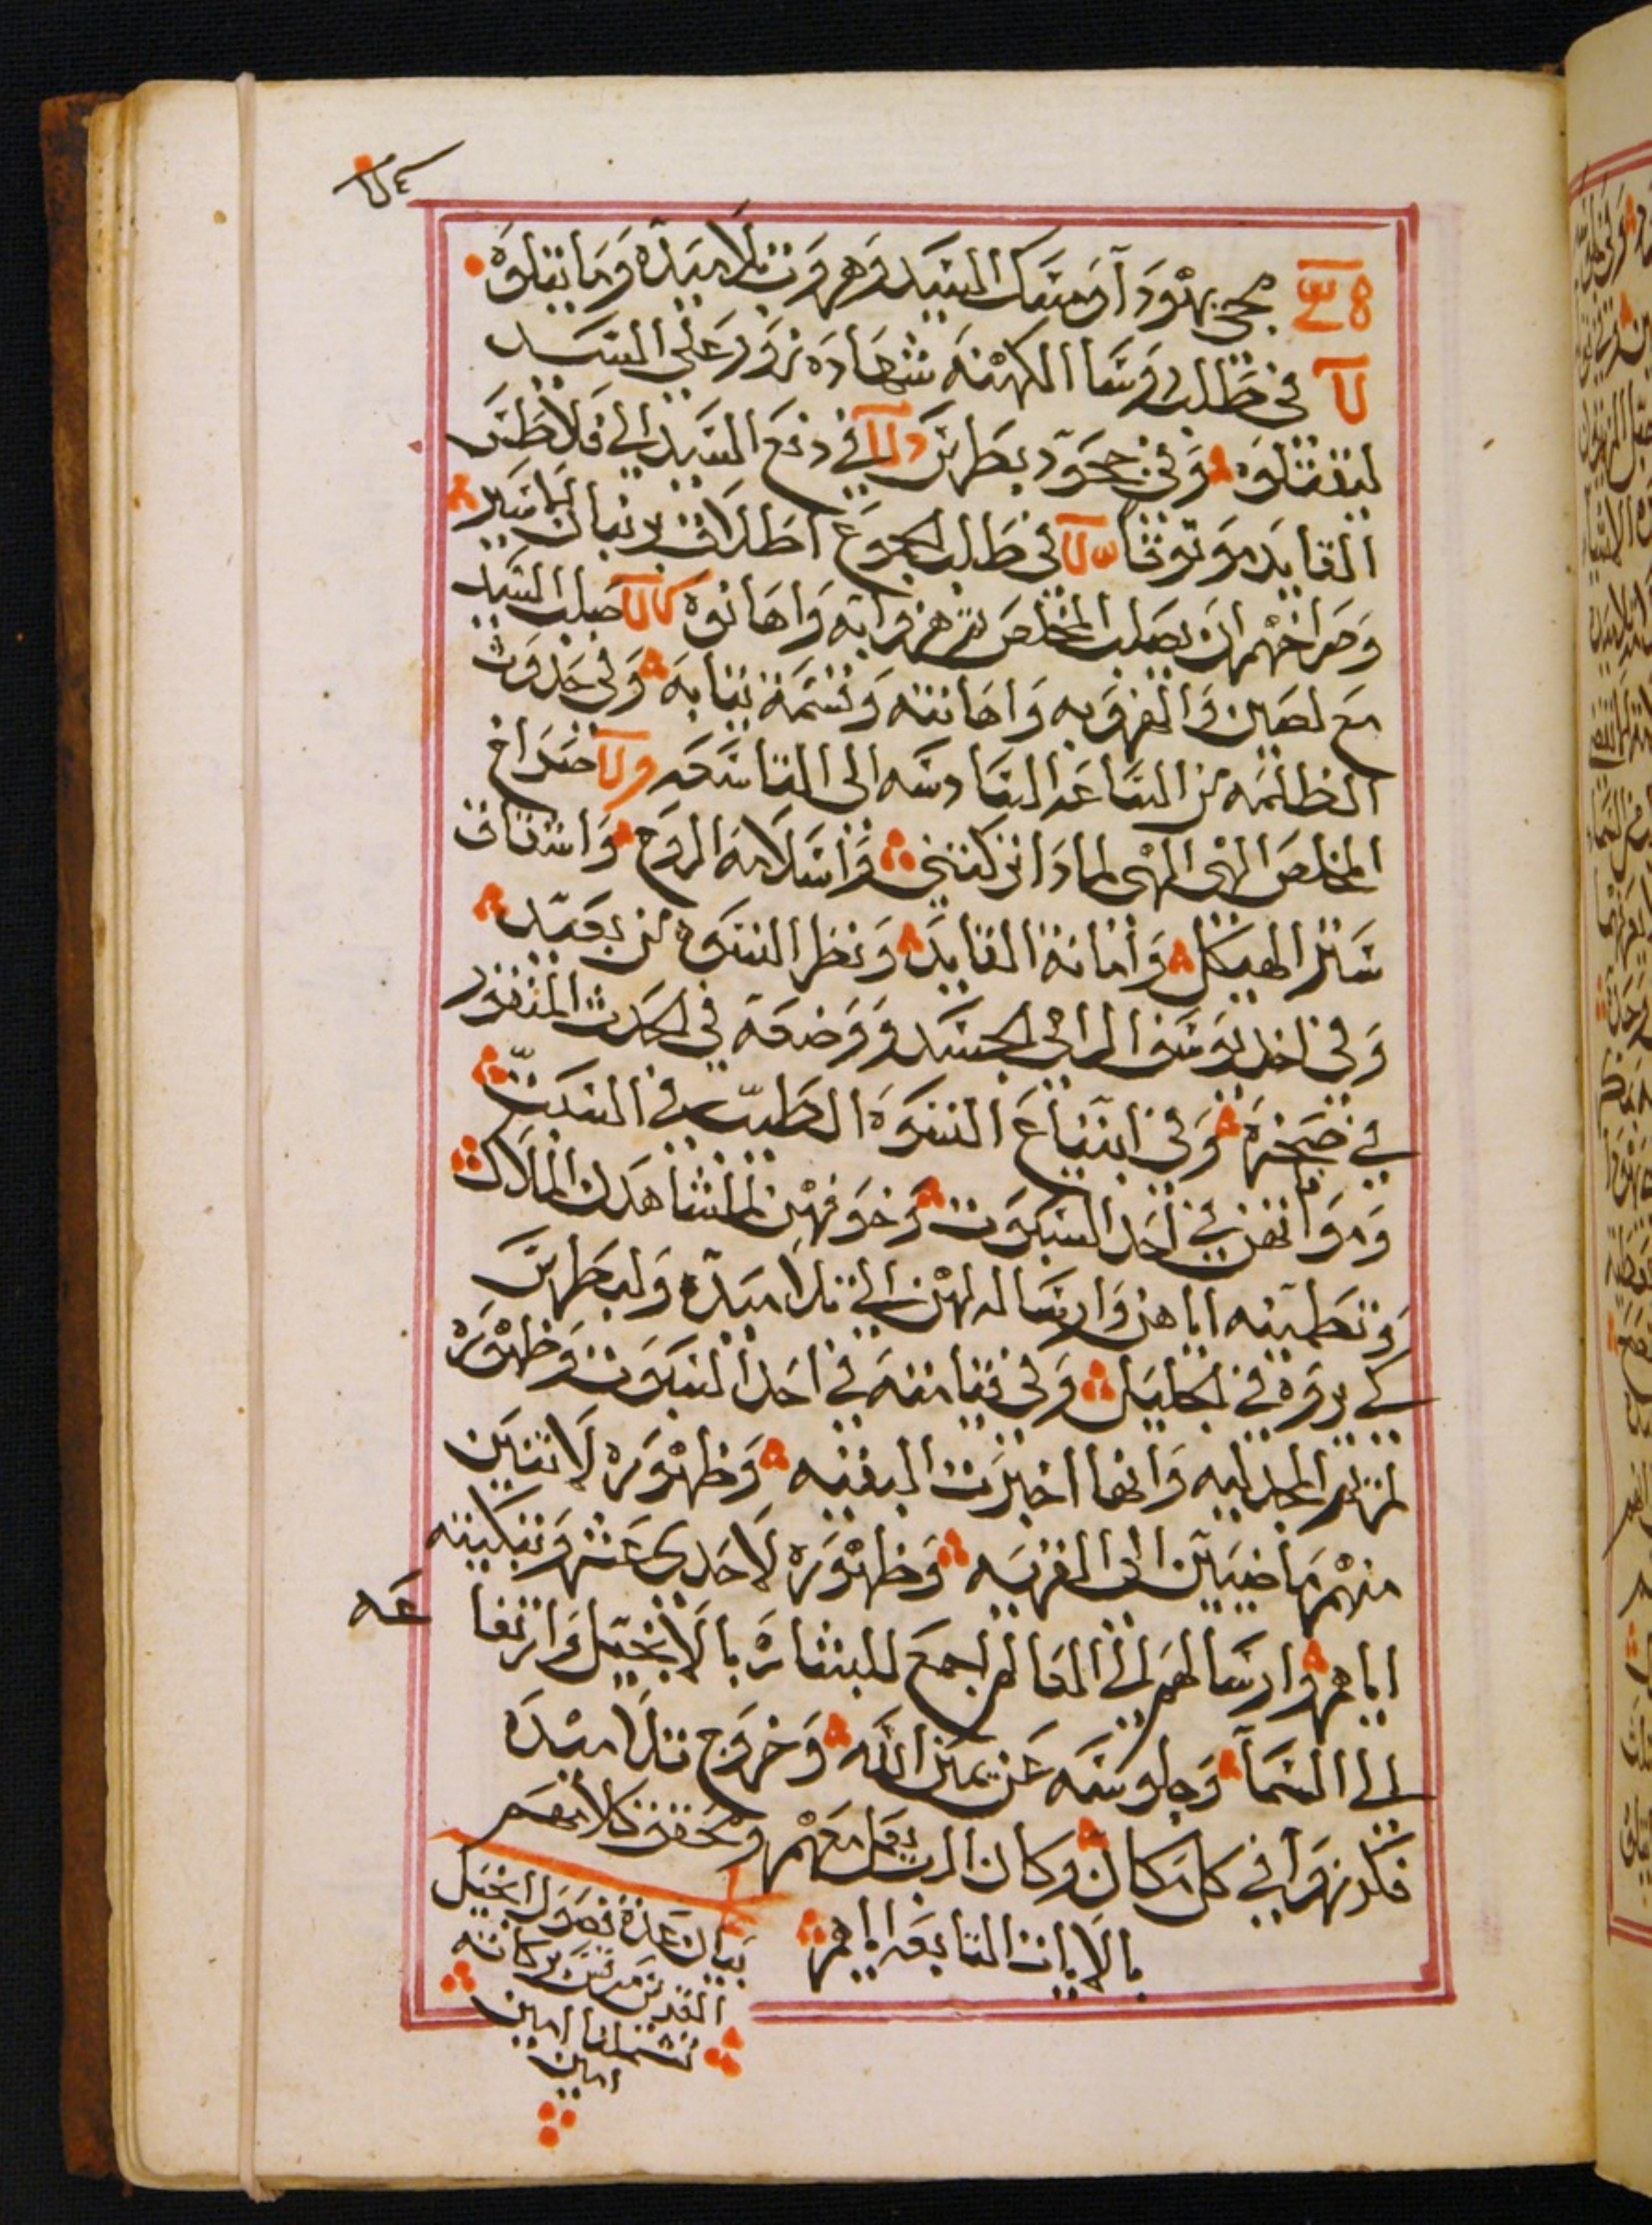 مجى يهودا ومسك السيد وهروب تلاميده وما يتلوه
في طلب روسا الكهنه شهاده زور على السيد
ليقتلوه وفي جحود بطرس في دفع السيد الى فلاطس
القايد موثوقا في طلب الجموع اطلاق برنبان الاسير
وصراخهم ان يصلب المخلص ثم هزوا به واهانوه صلب السيد
مع لصين والهزو به واهانته وقسمة ثيابه وفي حدوث
الظلمه من الساعه السادسه الى التاسعه صراخ
المخلص الهى الهى لماذا تركتني واسلامه الروح وانشقاق
ستر الهيكل وامانة القايد ونظر النسوه من بعيد
وفي اخد يوسف الرامي الجسد ووضعه في الحدث المنقور
في صخره وفي ابتياع النسوه الطيب في السبت
وموافاتهن في احد السبوت وخوفهن لما شاهدن الملاك
وتطمينه اياهن وارساله لهن الى تلاميده ولبطرس
لكي يروه في الجليل وفي قيامته في احد السبوت وظهوره
لمريم المجدليه وانها اخبرت البقيه وظهوره لاتنين
منهم ماضيين الى القريه وظهوره لاحدى عشر وتبكيته
اياهم وارسالهم الى العالم اجمع للبشاره بالانجيل وارتفا
عه
الى السما وجلوسه عن يمين الله وخروج تلاميده
فكرزوا في كل مكان وكان الرب يعمل معهم ويحقق كلامهم
بالايات التابعه اياهم
بيان عدة فصول انجيل
القديس مرقس بركاته
تشملنا امين
امين